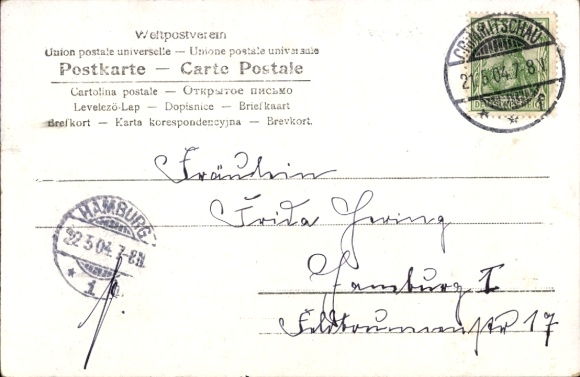 Weltpostverein
Union postale universelle — Unione postale universale
Postkarte — Carte Postale
Cartolina postale — Открытое письмо
Levelező-Lap — Dopisnice — Briefkaart
Brefkort — Karta korespondencyjna — Brevkort.
CRIMMITSCHAU
21.5.04.7-8 N
HAMBURG
22.5.04.7-8 N
* 1
Fräulein
Frida Gering
Hamburg I
Feldbrunnenstr 17